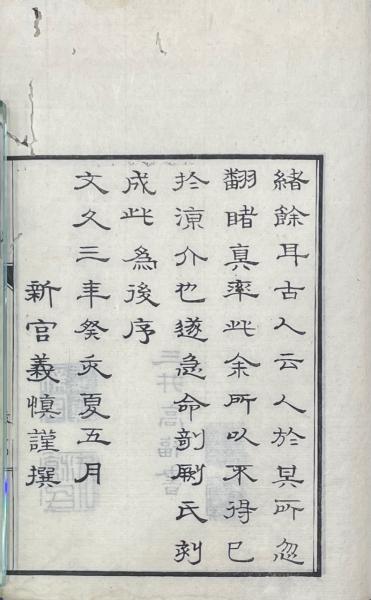 緒餘耳古人云人於其所忽
翻睹真率此余所以不得已
於涼介也遂急命剖劂氏刻
成此為後序
文久三年癸亥夏五月
新宮義慎謹撰